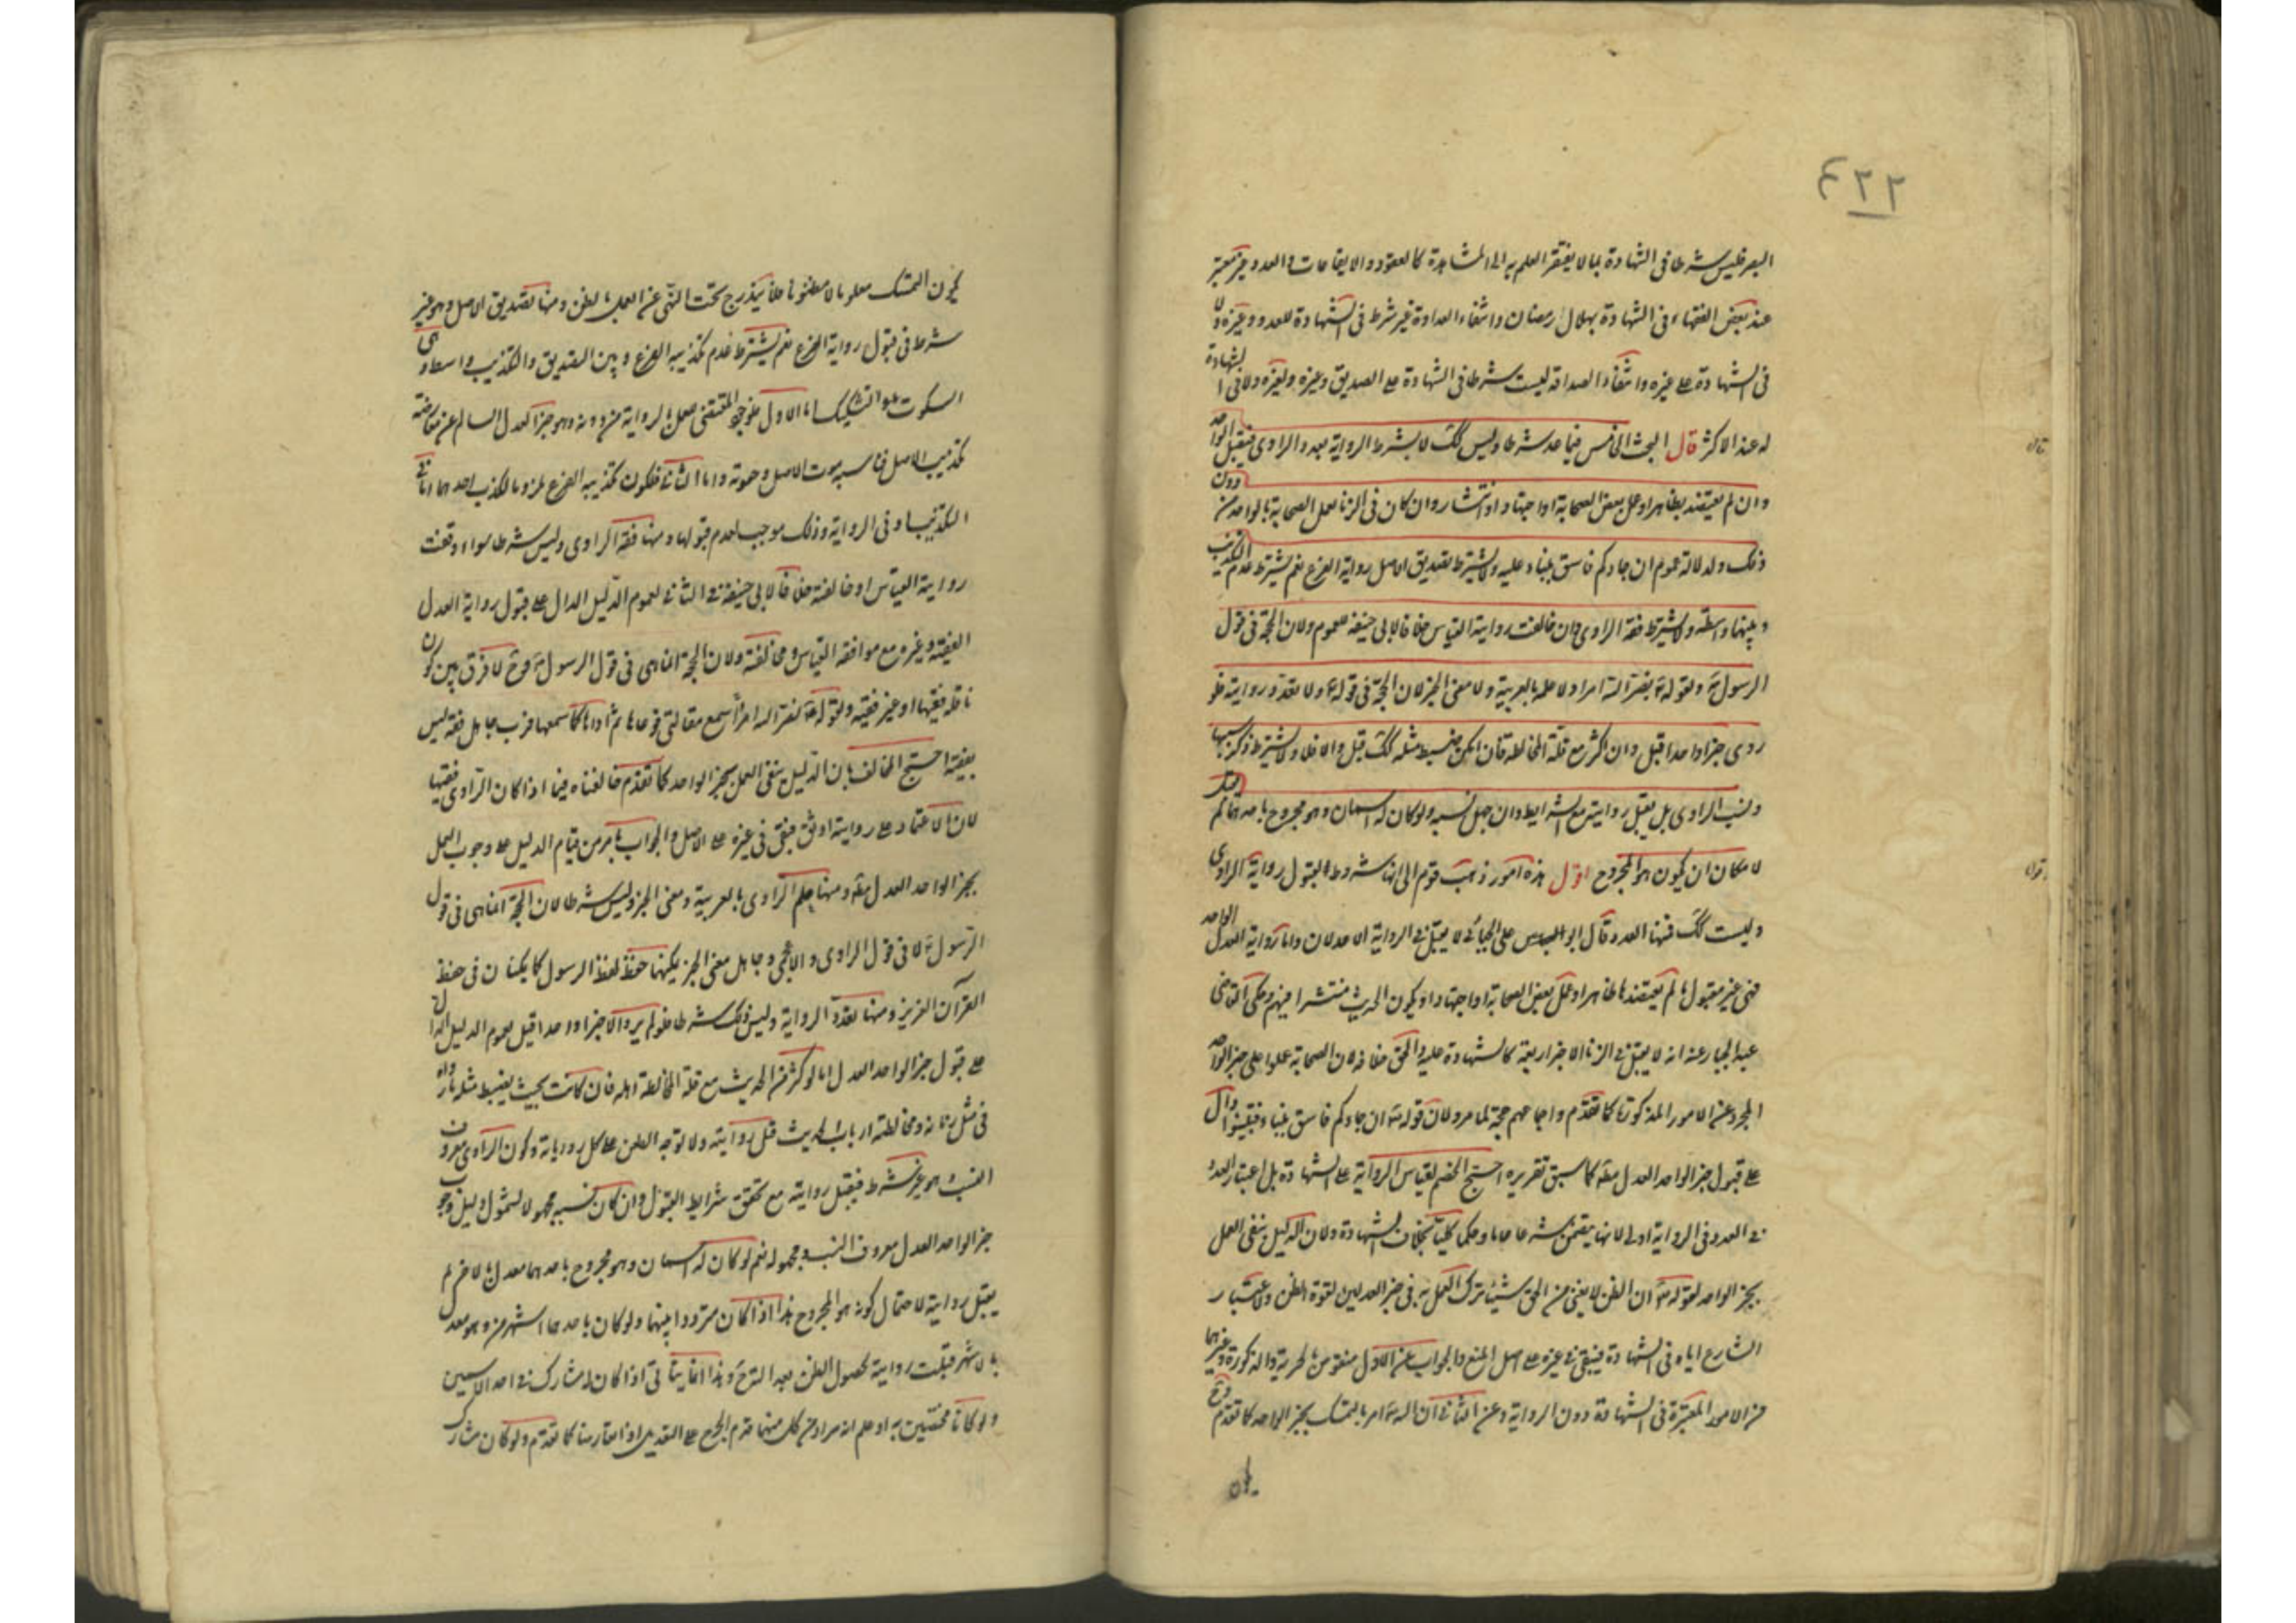 ٤٢٢
البصر فليس شرطا فى الشهادة بما لا يفتقر العلم به الى المشاهدة كالعقود والايقاعات والعدد غير معتبر
عند بعض الفقهاء فى الشهادة بهلال رمضان وانتفاء العداوة غير شرط فى الشهادة للعدو وغيره ولا
فى الشهادة على غيره وانتفاء الصداقة ليست شرطا فى الشهادة على الصديق وغيره ولغيره ولا فى الشهادة
له عند الاكثر قال البحث الخامس فيما عد شرطا وليس كك لا يشترط الرواية بعدد الراوى فيقبل الواحد
وان لم يعتضد بظاهر او عمل بعض الصحابة او اجتهاد او انتشار وان كان فى الزنا لعمل الصحابة بالواحد من دون
ذلك ولدلالة عموم ان جاءكم فاسق بنباء عليه ولا يشترط تصديق الاصل رواية الفرع نعم يشترط عدم التكذيب
وبينهما واسطة ولا يشترط فقه الراوى وان خالفت روايته القياس خلافا لابى حنيفة للعموم ولان الحجة فى قول
الرسول ولقوله نضر الله امرا ولا علمه بالعربية ولا معنى الخبر لان الحجة فى قوله ولا تعدد روايته فلو
روى خبرا واحدا قبل وان اكثر مع قلة المخالطة فان امكن ضبط مثله كك قبل والا فلا ولا يشترط ذكر سببها
ونسب الراوى بل يقبل روايته مع الشرايط وان جهل نسبه ولو كان له اسمان وهو مجروح باحدهما لم يقبل
لامكان ان يكون هو المجروح اقول هذه امور ذهب قوم الى انها شروط لقبول رواية الراوى
وليست كك فمنها العدد قال ابو على الجبائى لا يقبل فى الرواية الا عدلان واما رواية العدل الواحد
فهى غير مقبول ما لم يعتضد بظاهر او عمل بعض الصحابة او اجتهاد او يكون الحديث منتشرا فيهم وحكى القاضى
عبد الجبار عنه انه لا يقبل فى الزنا الا خبر اربعة كالشهادة عليه والحق خلافه لان الصحابة عملوا على خبر الواحد
المجرد عن الامور المذكورة كما تقدم واجماعهم حجة لما مر ولان قوله ان جاءكم فاسق بنباء فتبينوا دال
على قبول خبر الواحد العدل مط كما سبق تقريره احتج الخصم بقياس الرواية على الشهادة بل اعتبار العدد
فى العدد فى الرواية اولى لانها يتضمن شرعا عاما وحكما كليا بخلاف الشهادة ولان الدليل ينفى العمل
بخبر الواحد لقوله ان الظن لا يغنى من الحق شيئا ترك العمل به فى خبر العدلين لقوة الظن ولاعتبار
الشارع اياه فى الشهادة فيبقى فى غيره على اصل المنع والجواب عن الاول منقوض بالحرية والذكورة وغيرهما
من الامور المعتبرة فى الشهادة دون الرواية وعن الثانى ان الله امر بالتمسك بخبر الواحد كما تقدم وح
يكون التمسك معلوما لا مظنونا فلا يندرج تحت النهى عن العمل بالظن ومنها تصديق الاصل وهو غير
شرط فى قبول رواية الفرع نعم يشترط عدم تكذيبه الفرع وبين التصديق والتكذيب واسطة وهى
السكوت والتشكيك اما الاول فلوجود المقتضى لعمل الرواية من دونه وهو خبر العدل السالم عن معارضة
تكذيب الاصل واما الثانى فلكون تكذيبه الفرع ملزوما لكذب احدهما اما فى
التكذيب او فى الرواية وذلك موجب لعدم قبولها ومنها فقه الراوى وليس شرطا سواء وافقت
روايته القياس او خالفته خلافا لابى حنيفة فى الثانى لعموم الدليل الدال على قبول رواية العدل
الفقيه وغيره مع موافقة القياس ومخالفته ولان الحجة انما هى فى قول الرسول وح لا فرق بين كون
ناقله فقيها او غير فقيه ولقوله نضر الله امرأ سمع مقالتى فوعاها ثم اداها كما سمعها فرب حامل فقه ليس
بفقيه احتج المخالف بان الدليل ينفى العمل بخبر الواحد كما تقدم خالفناه فيما اذا كان الراوى فقيها
لان الاعتماد على روايته اوثق فيبقى فى غيره على الاصل والجواب ما مر من قيام الدليل على وجوب العمل
بخبر الواحد العدل مط ومنها علم الراوى بالعربية ومعنى الخبر وليس شرطا لان الحجة انما هى فى قول
الرسول لا فى قول الراوى والاعجمى وجاهل معنى الخبر يمكنهما حفظ لفظ الرسول كما يمكنان فى حفظ
القرآن العزيز ومنها تعدد الرواية وليس ذلك شرطا فلو لم يرو الا خبرا واحدا قبل لعموم الدليل الدال
على قبول خبر الواحد العدل اما لو كثر من الحديث مع قلة المخالطة لاهله فان كانت بحيث يضبط مثله ما رواه
فى مثل زمانه ومخالطته ارباب الحديث قبل روايته والا توجه الطعن على كل رواياته وكون الراوى معروف
النسب هو غير شرط فيقبل روايته مع تحقق شرايط القبول وان كان نسبه مجهولا لشمول دليل وجوب
خبر الواحد العدل معروف النسب ومجهوله نعم لو كان له اسمان وهو مجروح باحدهما معدل بالاخر لم
يقبل روايته لاحتمال كونه هو المجروح هذا اذا كان مترددا بينهما ولو كان باحدهما اشهر من وهو معدل
بالاشهر قبلت روايته لحصول الظن بعد الترجيح وهذا انما يتأتى اذا كان له مشارك فى احد الاسمين
ولو كانا مختصين به او علم انه مراد من كل منهما قدم الجرح على التعديل اذا تعارضا كما تقدم ولو كان مشارك